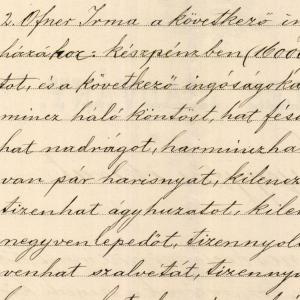 2. Ofner Irma a következő in
házához: készpénzben (1600
tot, és a következő ingóságoka
mincz háló köntöst, hat fésü
hat nadrágot, harminczha
van pár harisnyát, kilencz
tizenhat ágyhuzatot, kilen
negyven lepedőt, tizennyol
venhat szalvétát, tizenny